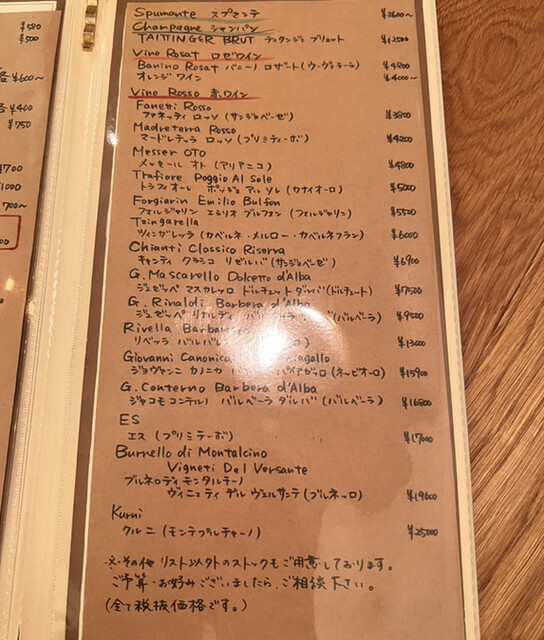 ¥580
¥500
¥600〜
¥400
¥750
¥700
1000
700〜
Spumante スプマンテ ¥3600〜
Champagne シャンパン
TAITTINGER BRUT テタンジェ ブリュット ¥12500
Vino Rosat ロゼワイン
Banino Rosat バニーノ ロザート(ウ・ヴァラーラ) ¥4800
オレンジ ワイン ¥4000〜
Vino Rosso 赤ワイン
Fanetti Rosso
ファネッティ ロッソ (サンジョベーゼ) ¥3800
Madreterra Rosso
マードレテッラ ロッソ (プリミティーボ) ¥4200
Messer OTO
メッセール オト (アリアニコ) ¥4800
Trafiore Poggio Al Sole
トラフィオーレ ポッジョ アル ソレ (カナイオーロ) ¥5000
Forgiarin Emilio Bulfon
フォルジャリン エミリオ ブルフォン (フォルジャリン) ¥5500
Tzingarella
ツィンガレッラ (カベルネ・メルロー・カベルネフラン) ¥6000
Chianti Classico Riserva
キャンティ クラシコ リゼルバ (サンジョベーゼ) ¥6900
G. Mascarello Dolcetto d'Alba
ジュゼッペ マスカレッロ ドルチェット ダルバ(ドルチェット) ¥7500
G. Rinaldi Barbera d'Alba
ジュゼッペ リナルディ (バルベーラ) ¥9500
Rivella
リベッラ ¥13000
Giovanni Canonica
ジョヴァンニ カノニカ (ネッビオーロ) ¥15900
G. Conterno Barbera d'Alba
ジャコモコンテルノ バルベーラ ダルバ (バルベーラ) ¥16800
ES
エス (プリミテーボ) ¥17000
Burnello di Montalcino
Vigneti Del Versante
ブルネロディ モンタルチーノ
ヴィニェティ デル ヴェルサンテ (ブルネッロ) ¥19600
Kurni
クルニ (モンテプルチャーノ) ¥25000
※・その他 リスト以外のストックもご用意しております。
ご予算・お好みございましたら、ご相談下さい。
(全て税抜価格です。)